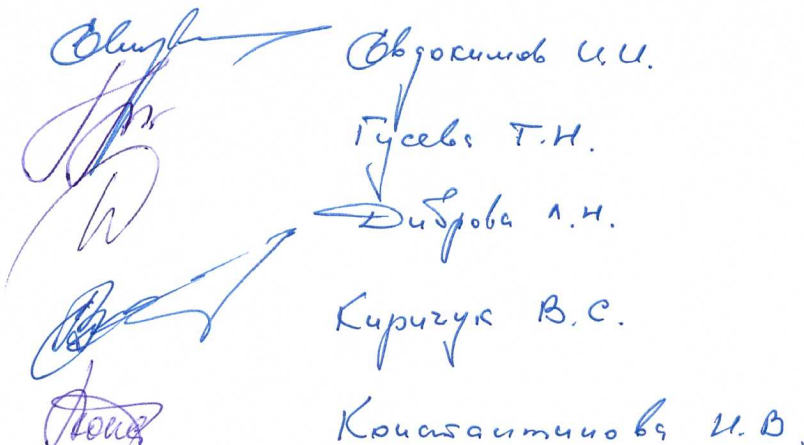 Евдокимов И.И.
Гусева Т.Н.
Диброва Л.Н.
Киричук В.С.
Константинова И.В.